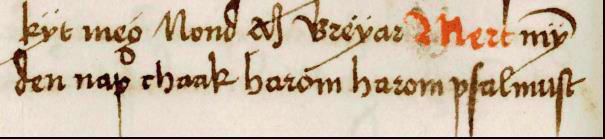 kÿt meg Nond eſh Vreÿar Mert mÿ
den nap chaak harom harom pſalmuſt